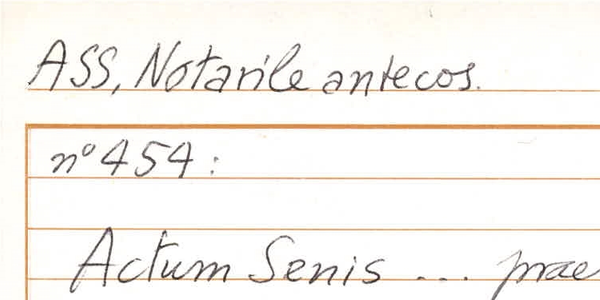 ASS, Notarile antecos.
n° 454:
Actum Senis ... prae